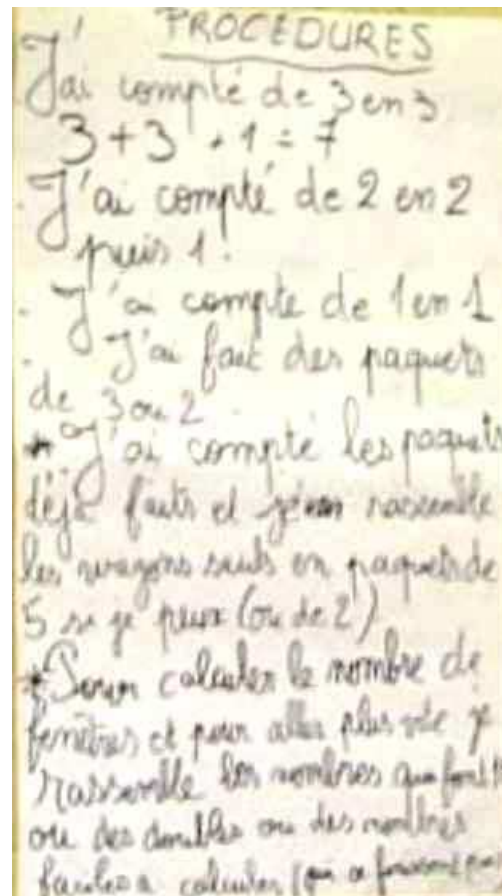 PROCEDURES
J'ai compté de 3 en 3
3+3+1=7
J'ai compté de 2 en 2
puis 1.
- J'ai compté de 1 en 1
- J'ai fait des paquets
de 3 ou 2
* J'ai compté les paquets
déjà faits et rassemble
les wagons seuls en paquets de
5 si je peux (ou de 2)
* calculer le nombre de
fenêtres et pour aller plus vite je
rassemble les nombres qui font
ou des doubles ou des nombres
faciles a calculer